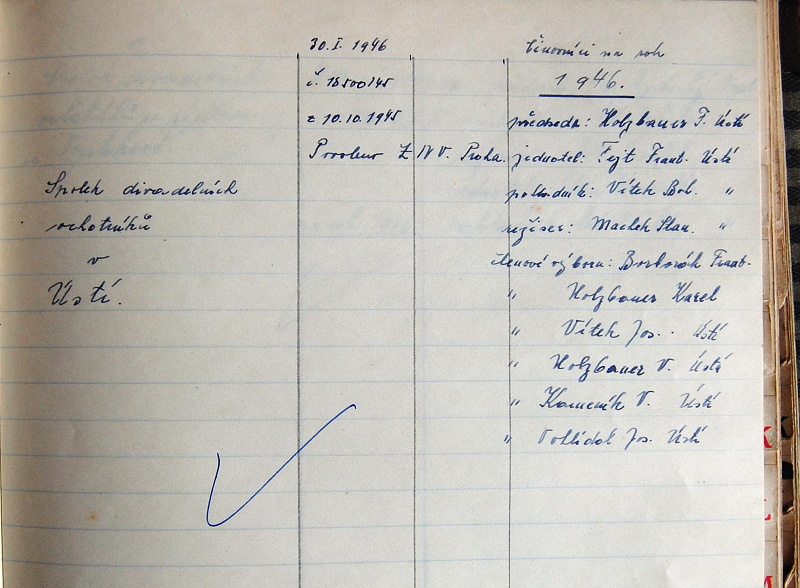 Spolek divadelních
ochotníků
v
Ústí.
30.I. 1946
č. 18500/45
z 10.10.1945
Povolen ZNV. Praha.
Činovníci na rok
1946.
předseda: Holzbauer F. Ústí
jednatel: Fejt Frant. Ústí
pokladník: Vítek Boh. "
režiser: Machek Stan. "
členové výboru: Borkorák Frant.
" Holzbauer Karel
" Vítek Jos. Ústí
" Holzbauer V. Ústí
" Kameník V. Ústí
" Vohlídal Jos. Ústí
K